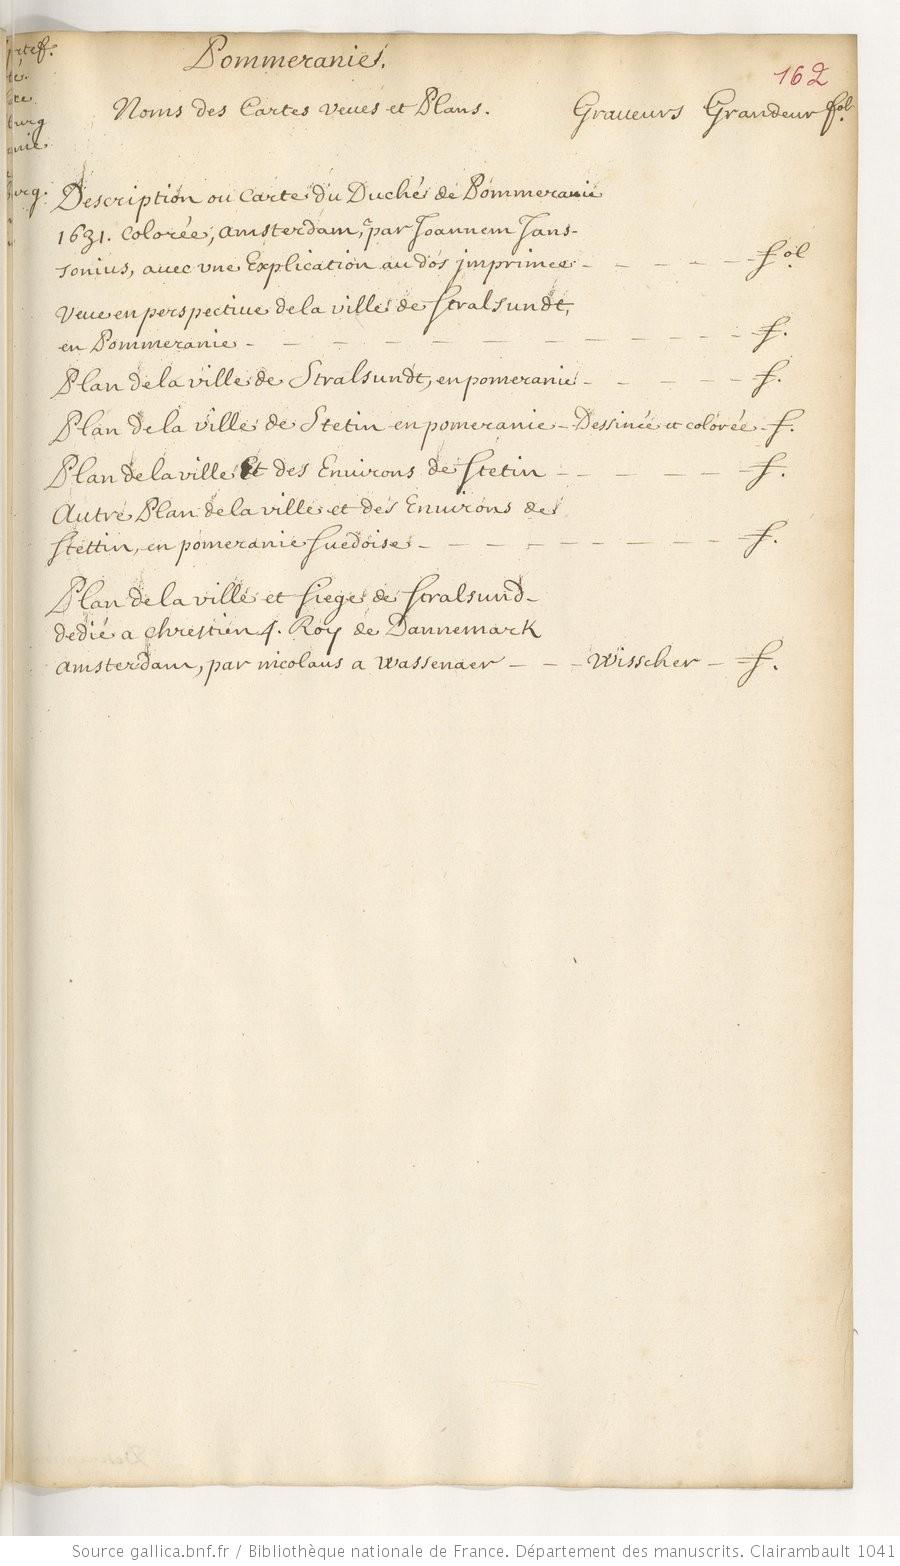 Pommeranie.
162
Noms des Cartes veües et Plans. Graveurs Grandeur fol.
Description ou Carte du Duché de Pommeranie
1631. Colorée, Amsterdam, par Joannem Jans-
sonius, avec une Explication au dos jmprimée - - - - - fol
Veue en perspective de la ville de Stralsundt,
en Pommeranie - - - - - - - - - - - f.
Plan de la ville de Stralsundt, en pomeranie - - - - - f.
Plan de la ville de Stetin en pomeranie - Dessinée et colorée - f.
Plan de la ville Et des Environs de Stetin - - - - - f.
Autre Plan de la ville et des Environs de
Stettin, en pomeranie Suedoise - - - - - - - - - f.
Plan de la ville et Siege de Stralsund -
dedié a Chrestien 4. Roy de Dannemark
Amsterdam, par nicolaus a Wassenaer - - - Wisscher - f.
Source gallica.bnf.fr / Bibliothèque nationale de France. Département des manuscrits. Clairambault 1041